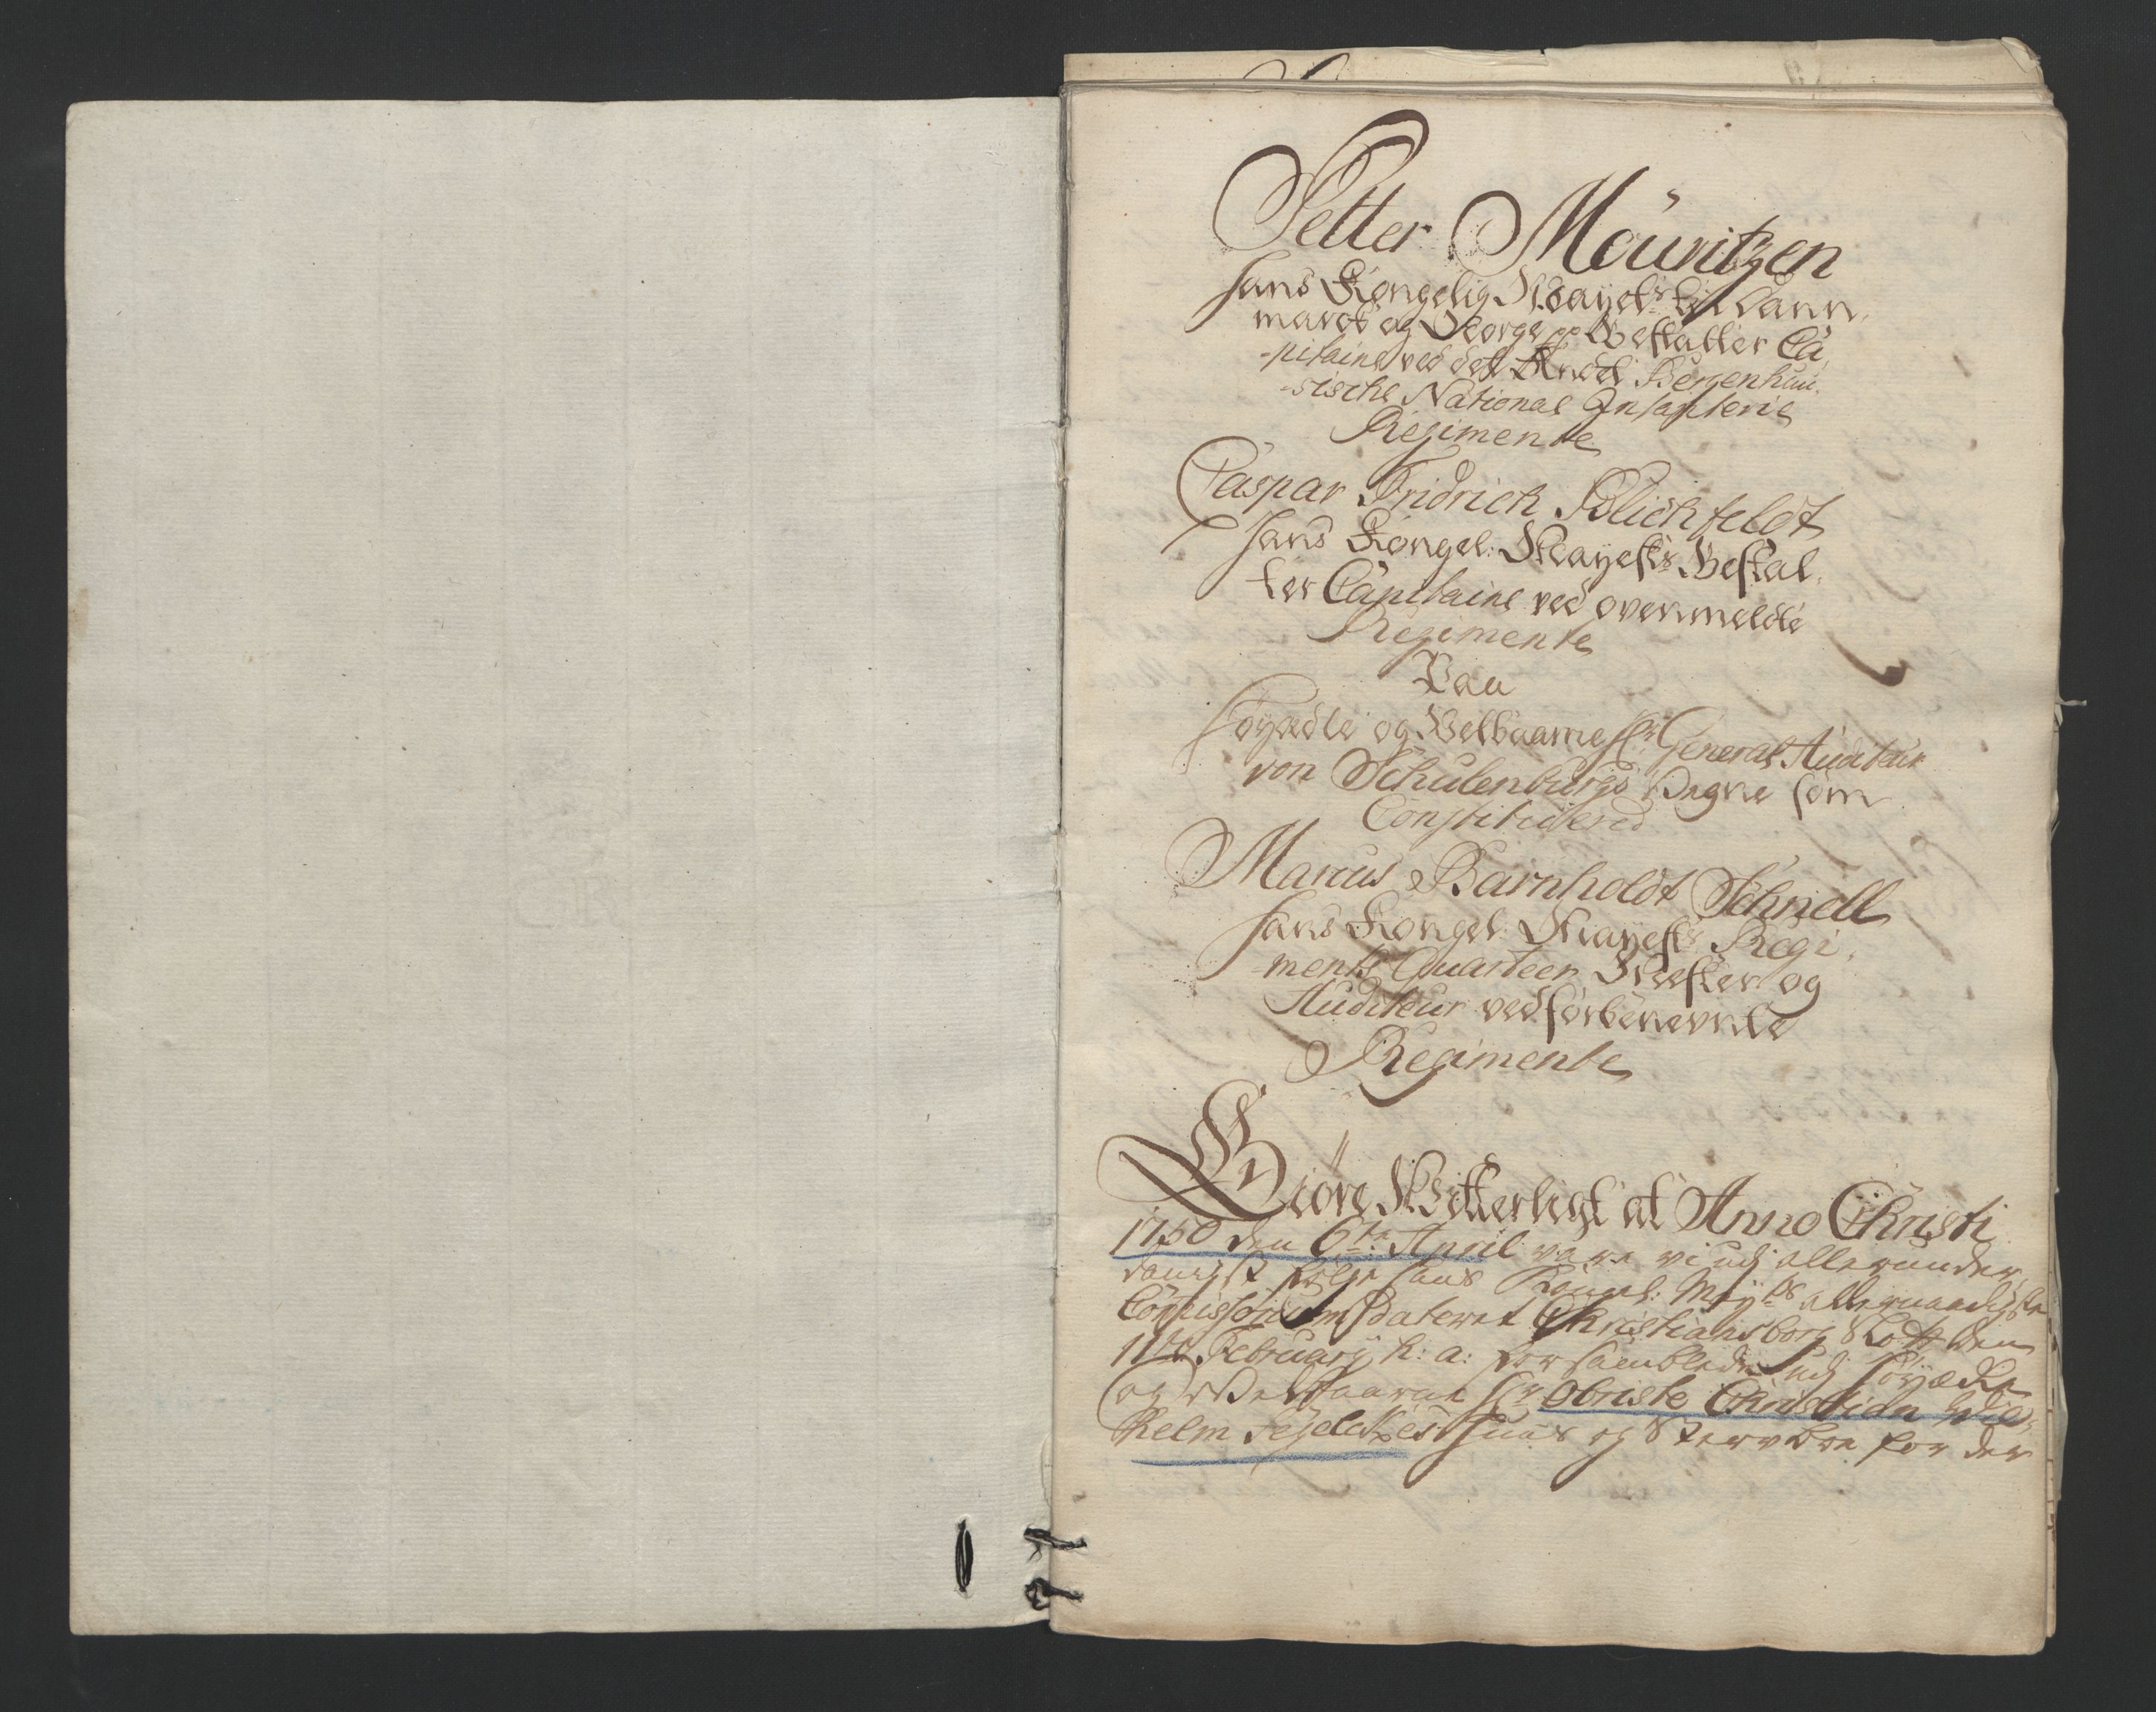 Petter Mouritzen
Hans Kongelig Mayets til Dann,
march og Norge pp Bestalter Ca,
-pitaine ved det Andet Bergenhuu,
-sische National Infanterie
Regimente
Caspar Fridrich Blichfeldt
Hans Kongel: Mayests Bestal,
ter Capitaine ved overmeldte
Regimente
Paa
Høyædle og Velbaarne Hr General Auditeur
von Schulenburgs Vegne som
Constituered
Marcus Barnholdt Schnell
Hans Kongel: Mayests Regi,
-ments Quarteer Mester og
Auditeur ved forbenevnte
Regimente
Giøre Witterligt at Anno Christi
1750 den 6te April vare vi udj allerunder,
danigst følge Hans Kongel: Mayts allernaadigste
Commissorium dateret Christiansborg Slott den
Februarij h: a: forsamblede udj Høyædle
og Velbaarne Hr Obriste Christian Wil,
helm Segelckes Huus og Sterboe for der